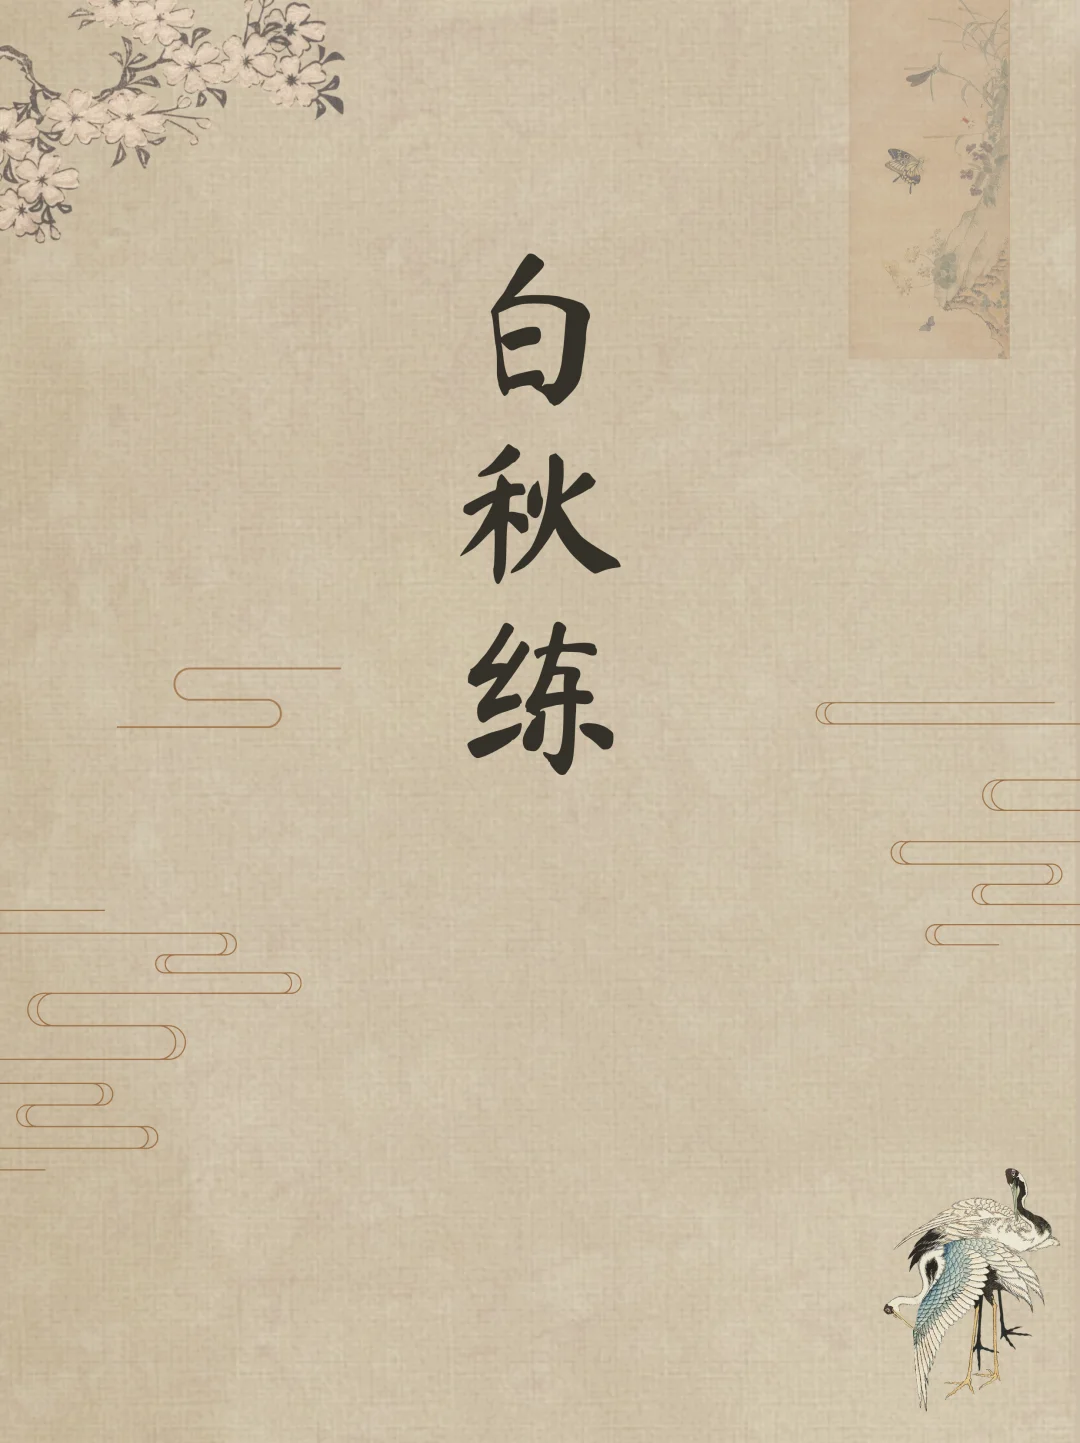 白秋练